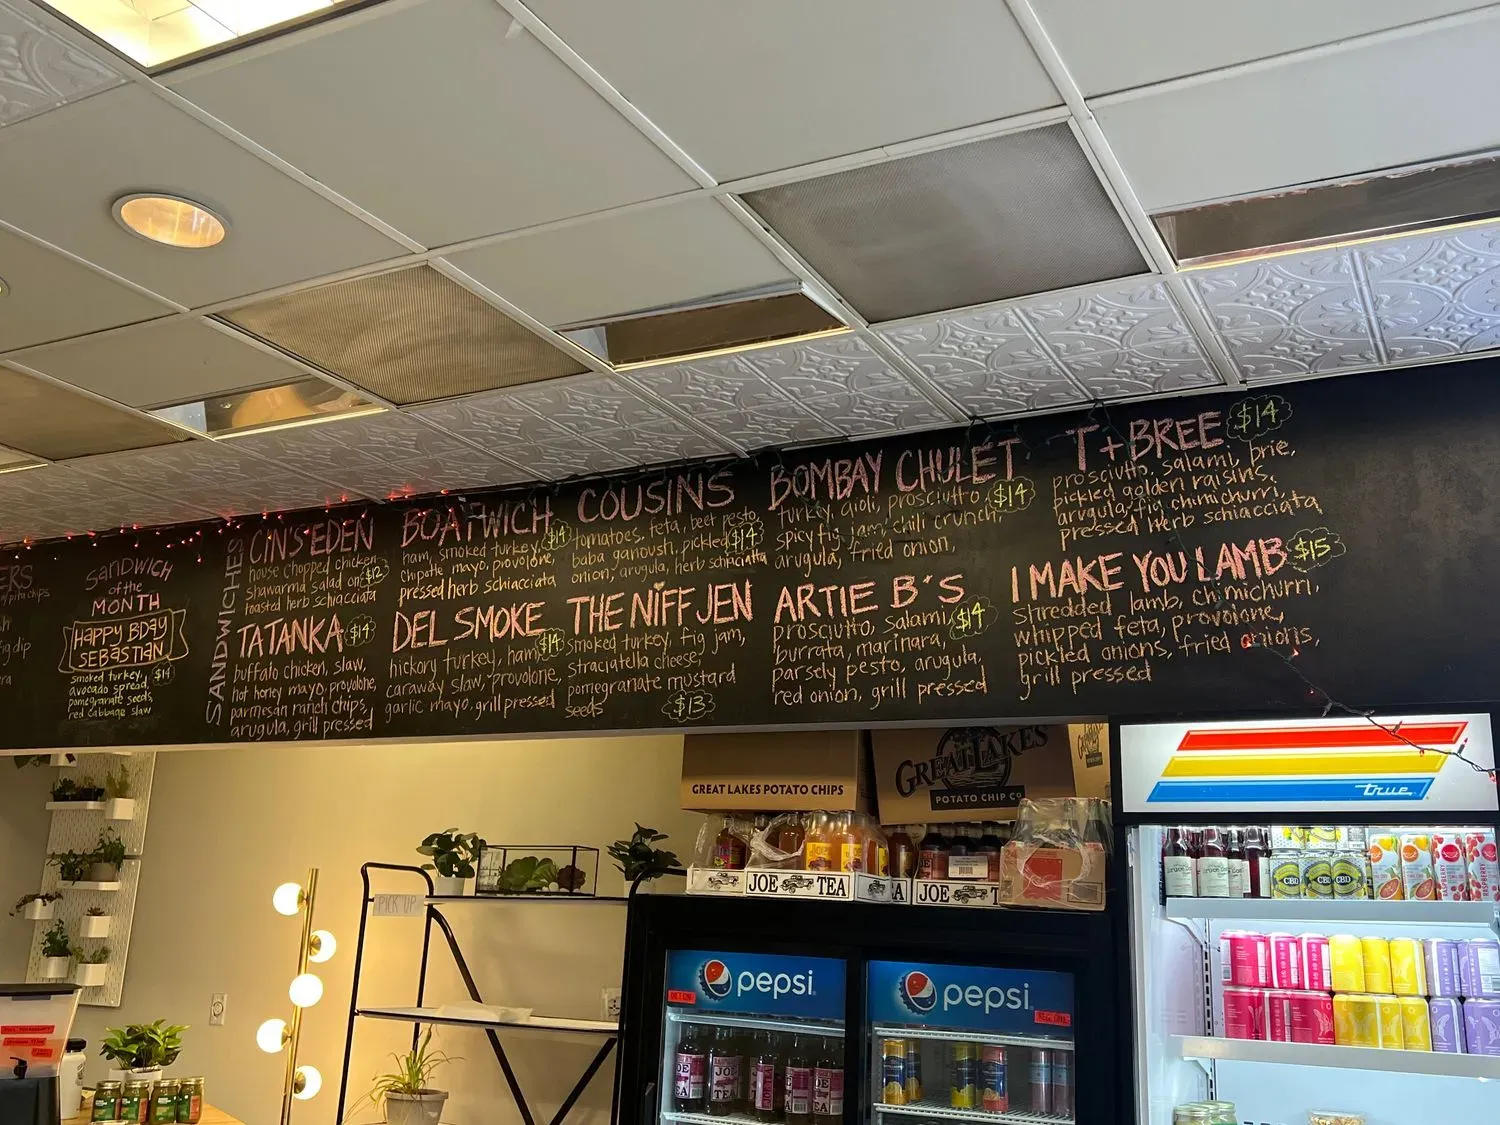 SANDWICH
of the
MONTH
HAPPY BDAY
SEBASTIAN
smoked turkey, $14
avocado spread,
pomegranate seeds,
red cabbage slaw
SANDWICHES
CIN'S EDEN
house chopped chicken
shawarma salad on $12
toasted herb schiacciata
TATANKA $14
buffalo chicken, slaw,
hot honey mayo, provolone,
parmesan ranch chips,
arugula, grill pressed
BOATWICH
ham, smoked turkey, $14
chipotle mayo, provolone,
pressed herb schiacciata
DEL SMOKE
hickory turkey, ham, $14
caraway slaw, provolone,
garlic mayo, grill pressed
COUSINS
tomatoes, feta, beet pesto,
baba ganoush, pickled $14
onion, arugula, herb schiacciatta
THE NIFF JEN
smoked turkey, fig jam,
straciatella cheese,
pomegranate mustard
seeds $13
BOMBAY CHULET
turkey, aioli, prosciutto, $14
spicy fig jam, chili crunch,
arugula, fried onion,
ARTIE B'S
prosciutto, salami, $14
burrata, marinara,
parsely pesto, arugula,
red onion, grill pressed
T+BREE $14
prosciutto, salami, brie,
pickled golden raisins,
arugula, fig chimichurri,
pressed herb schiacciata
I MAKE YOU LAMB $15
shredded lamb, chimichurri,
whipped feta, provolone,
pickled onions, fried onions,
grill pressed
ERS
pita chips
fig dip
GREAT LAKES POTATO CHIPS
GREAT LAKES
POTATO CHIP CO
JOE TEA
JOE T
PICK UP
pepsi
pepsi
true
CBD
CBD
CBD
JOE
TEA